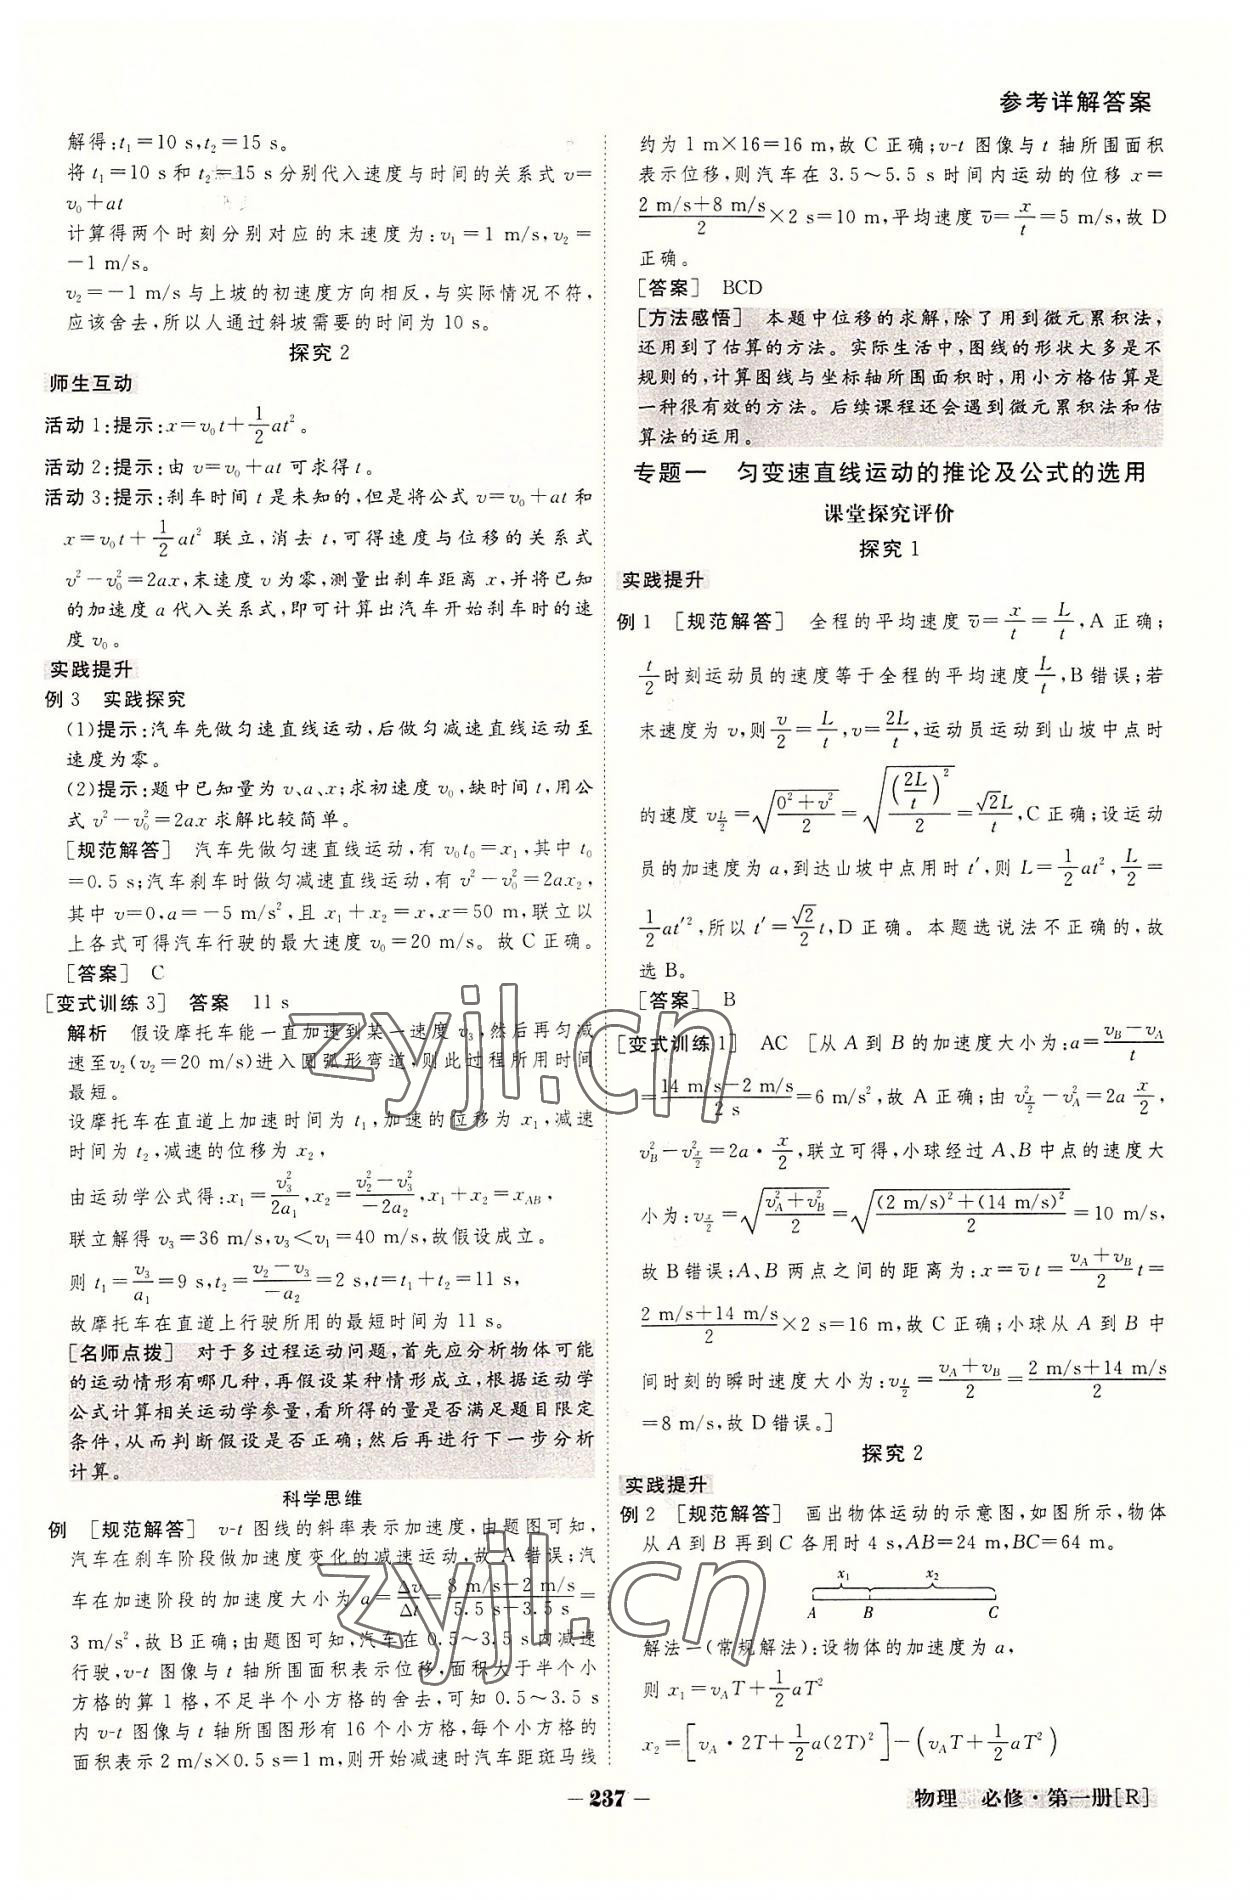 参考详解答案
解得:t₁=10 s,t₂=15 s。
将 t₁=10 s和 t₂=15 s分别代入速度与时间的关系式 v=
v₀+at
计算得两个时刻分别对应的末速度为:v₁=1 m/s,v₂=
-1 m/s。
v₂=-1 m/s与上坡的初速度方向相反,与实际情况不符,
应该舍去,所以人通过斜坡需要的时间为10 s。
探究2
师生互动
活动1:提示:x=v₀t+\frac{1}{2}at²。
活动2:提示:由 v=v₀+at 可求得 t。
活动3:提示:刹车时间 t 是未知的,但是将公式 v=v₀+at 和
x=v₀t+\frac{1}{2}at² 联立,消去 t,可得速度与位移的关系式
v²-v₀²=2ax,末速度 v 为零,测量出刹车距离 x,并将已知
的加速度 a 代入关系式,即可计算出汽车开始刹车时的速
度 v₀。
实践提升
例3 实践探究
(1)提示:汽车先做匀速直线运动,后做匀减速直线运动至
速度为零。
(2)提示:题中已知量为 v、a、x;求初速度 v₀,缺时间 t,用公
式 v²-v₀²=2ax 求解比较简单。
[规范解答] 汽车先做匀速直线运动,有 v₀t₀=x₁,其中 t₀
=0.5 s;汽车刹车时做匀减速直线运动,有 v²-v₀²=2ax₂,
其中 v=0,a=-5 m/s²,且 x₁+x₂=x,x=50 m,联立以
上各式可得汽车行驶的最大速度 v₀=20 m/s。故C正确。
[答案] C
[变式训练3] 答案 11 s
解析 假设摩托车能一直加速到某一速度 v₃,然后再匀减
速至v₂(v₂=20 m/s)进入圆弧形弯道,则此过程所用时间
最短。
设摩托车在直道上加速时间为 t₁,加速的位移为 x₁,减速
时间为 t₂,减速的位移为 x₂,
由运动学公式得:x₁=\frac{v₃²}{2a₁},x₂=\frac{v₂²-v₃²}{-2a₂},x₁+x₂=x_{AB},
联立解得 v₃=36 m/s,v₃<v₁=40 m/s,故假设成立。
则 t₁=\frac{v₃}{a₁}=9 s,t₂=\frac{v₂-v₃}{-a₂}=2 s,t=t₁+t₂=11 s,
故摩托车在直道上行驶所用的最短时间为11 s。
[名师点拨] 对于多过程运动问题,首先应分析物体可能
的运动情形有哪几种,再假设某种情形成立,根据运动学
公式计算相关运动学参量,看所得的量是否满足题目限定
条件,从而判断假设是否正确;然后再进行下一步分析
计算。
科学思维
例 [规范解答] v-t 图线的斜率表示加速度,由题图可知,
汽车在刹车阶段做加速度变化的减速运动,故A错误;汽
车在加速阶段的加速度大小为 a=\frac{Δv}{Δt}=\frac{8 m/s-2 m/s}{5.5 s-3.5 s}=
3 m/s²,故B正确;由题图可知,汽车在0.5~3.5 s内减速
行驶,v-t 图像与 t 轴所围面积表示位移,面积大于半个小
方格的算1格,不足半个小方格的舍去,可知0.5~3.5 s
内 v-t 图像与 t 轴所围图形有16个小方格,每个小方格的
面积表示2 m/s×0.5 s=1 m,则开始减速时汽车距斑马线
约为1 m×16=16 m,故C正确;v-t 图像与 t 轴所围面积
表示位移,则汽车在3.5~5.5 s时间内运动的位移 x=
\frac{2 m/s+8 m/s}{2}×2 s=10 m,平均速度 \bar{v}=\frac{x}{t}=5 m/s,故D
正确。
[答案] BCD
[方法感悟] 本题中位移的求解,除了用到微元累积法,
还用到了估算的方法。实际生活中,图线的形状大多是不
规则的,计算图线与坐标轴所围面积时,用小方格估算是
一种很有效的方法。后续课程还会遇到微元累积法和估
算法的运用。
专题一 匀变速直线运动的推论及公式的选用
课堂探究评价
探究1
实践提升
例1 [规范解答] 全程的平均速度 \bar{v}=\frac{x}{t}=\frac{L}{t},A正确;
\frac{t}{2}时刻运动员的速度等于全程的平均速度\frac{L}{t},B错误;若
末速度为 v,则\frac{v}{2}=\frac{L}{t},v=\frac{2L}{t},运动员运动到山坡中点时
的速度 v_{\frac{L}{2}}=\sqrt{\frac{0²+v²}{2}}=\sqrt{\frac{(\frac{2L}{t})²}{2}}=\frac{\sqrt{2}L}{t},C正确;设运动
员的加速度为 a,到达山坡中点用时 t′,则 L=\frac{1}{2}at²,\frac{L}{2}=
\frac{1}{2}at′²,所以 t′=\frac{\sqrt{2}}{2}t,D正确。本题选说法不正确的,故
选B。
[答案] B
[变式训练1] AC [从 A 到 B 的加速度大小为:a=\frac{v_B-v_A}{t}
=\frac{14 m/s-2 m/s}{2 s}=6 m/s²,故A正确;由 v²_{\frac{x}{2}}-v²_A=2a\frac{x}{2},
v²_B-v²_{\frac{x}{2}}=2a·\frac{x}{2},联立可得,小球经过 A、B 中点的速度大
小为:v_{\frac{x}{2}}=\sqrt{\frac{v²_A+v²_B}{2}}=\sqrt{\frac{(2 m/s)²+(14 m/s)²}{2}}=10 m/s,
故B错误;A、B 两点之间的距离为:x=\bar{v}t=\frac{v_A+v_B}{2}t=
\frac{2 m/s+14 m/s}{2}×2 s=16 m,故C正确;小球从 A 到 B 中
间时刻的瞬时速度大小为:v_{\frac{t}{2}}=\frac{v_A+v_B}{2}=\frac{2 m/s+14 m/s}{2}
=8 m/s,故D错误。]
探究2
实践提升
例2 [规范解答] 画出物体运动的示意图,如图所示,物体
从 A 到 B 再到 C 各用时4 s,AB=24 m,BC=64 m。
x₁ x₂
A B C
解法一(常规解法):设物体的加速度为 a,
则 x₁=v_AT+\frac{1}{2}aT²
x₂=[v_A·2T+\frac{1}{2}a(2T)²]-(v_AT+\frac{1}{2}aT²)
- 237 -
物理 必修·第一册[R]
zyjl.cn
zyjl.cn